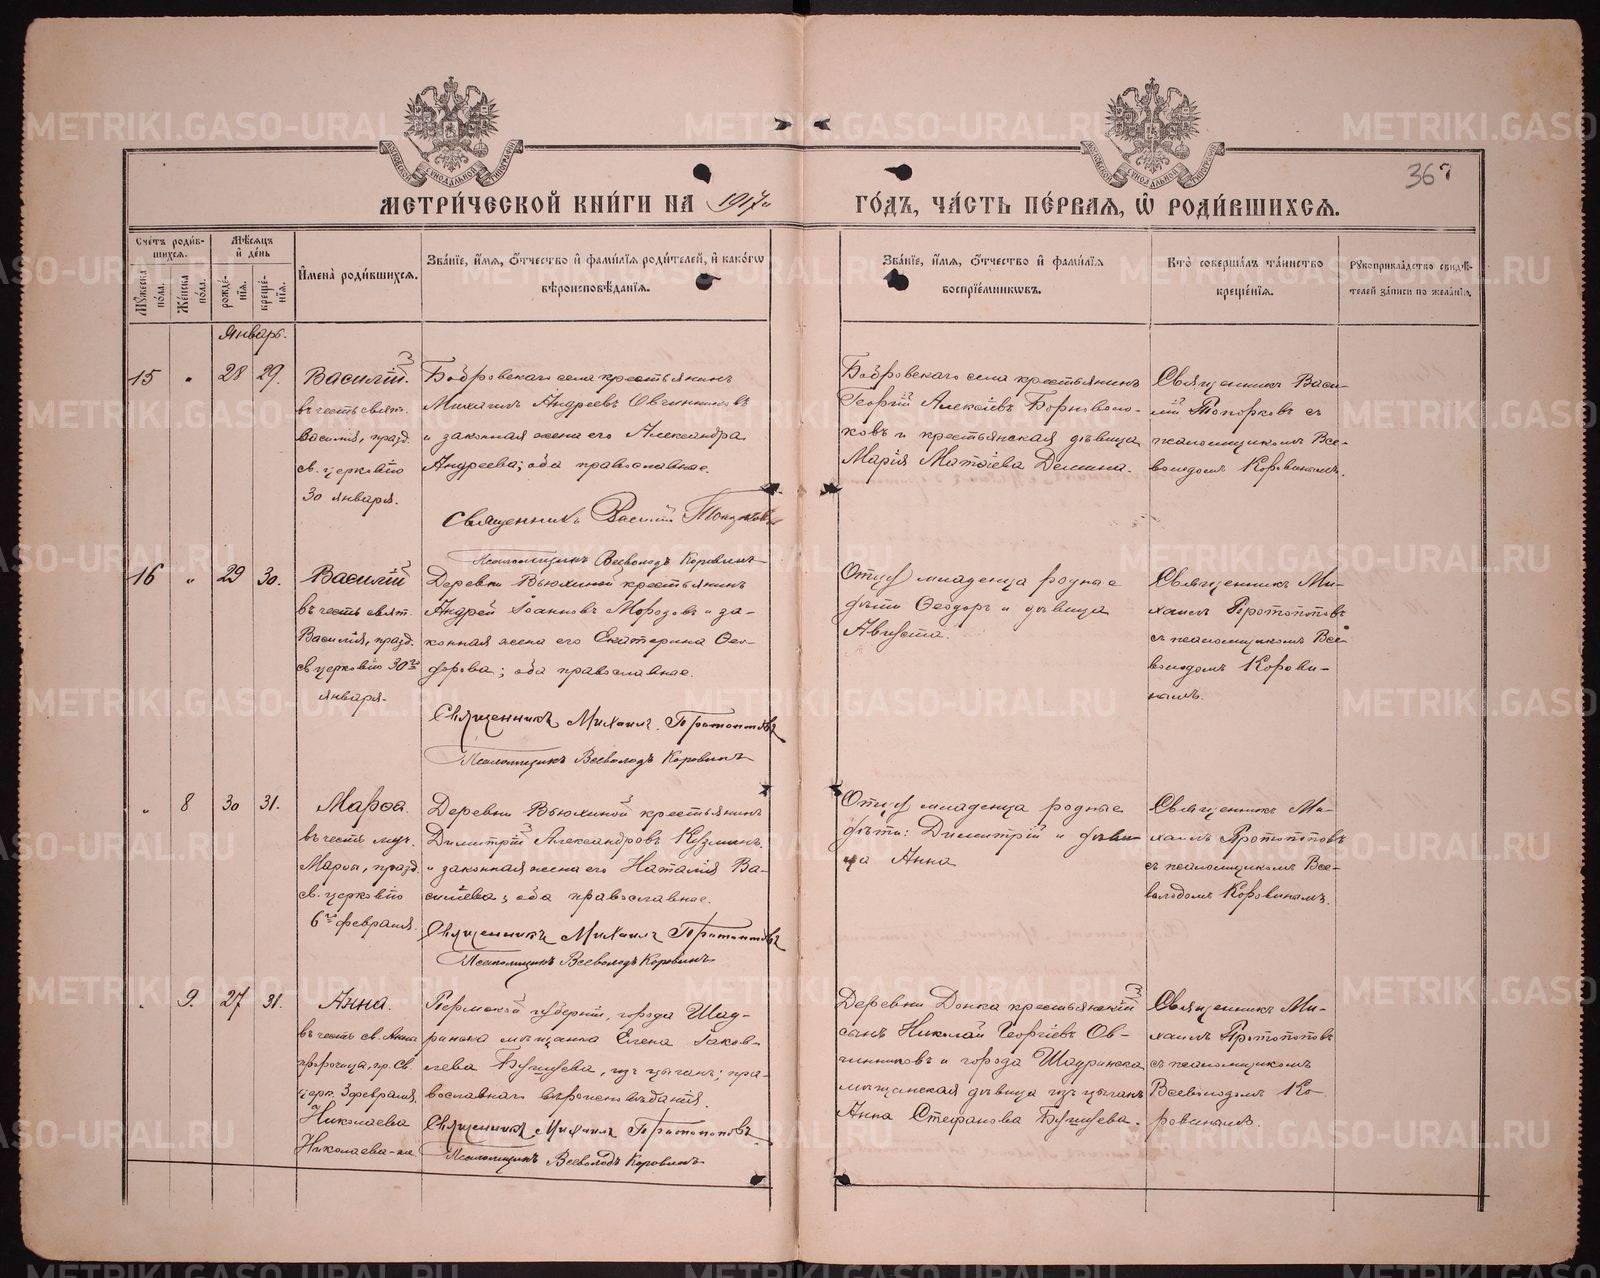 367
МЕТРИ́ЧЕСКОЙ КНИ́ГИ НА 1917 ГО́ДЪ, ЧА́СТЬ ПЕ́РВАЯ, Ѿ РОДИ́ВШИХСЯ.
Сче́тъ роди́вшихся.
Мѣ́сяцъ и҆ де́нь
Мꙋ́жеска по́ла.
Же́нска по́ла.
рожде́нїя.
креще́нїя.
И҆мена̀ роди́вшихся.
Зва́нїе, и҆́мя, ѻ҆́тчество и҆ фами́лїя роди́телей, и҆ како́гѡ вѣроисповѣ́данїя.
Зва́нїе, и҆́мя, ѻ҆́тчество и҆ фами́лїя воспрїе́мникѡвъ.
Кто̀ соверша́лъ та́инство креще́нїя.
Рꙋкоприкла́дство свидѣ́телей за́писи по жела́нїю.
Январь.
15 " 28 29.
Василій.
въ честь свят.
Василія, празд.
св. церковію
30 января.
Бобровскаго села крестьянинъ
Михаилъ Андреевъ Овчинниковъ
и законная жена его Александра
Андреева; оба православные.
Священникъ Василій Топорковъ
Псаломщикъ Всеволодъ Коровинъ
Бобровскаго села крестьянинъ
Георгій Алексіевъ Борноволо-
ковъ и крестьянская дѣвица
Марія Матѳіева Демина.
Священникъ Васи-
лій Топорковъ съ
псаломщикомъ Все-
володомъ Коровинымъ.
16 " 29 30.
Василій
въ честь свят.
Василія, празд.
св церковію 30го
января.
Деревни Вьюхиной крестьянинъ
Андрей Іоанновъ Морозовъ и за-
конная жена его Екатерина Ѳео-
дорова; оба православные.
Священникъ Михаилъ Протопоповъ
Псаломщикъ Всеволодъ Коровинъ
Отцу младенца родные
дѣти Ѳеодоръ и дѣвица
Августа.
Священникъ Ми-
хаилъ Протопоповъ
съ псаломщикомъ Все-
володомъ Корови-
нымъ.
" 8 30 31.
Марѳа.
въ честь муч.
Марѳы, празд.
св. церковію
6го февраля.
Деревни Вьюхиной крестьянинъ
Димитрій Александровъ Кузминъ
и законная жена его Наталія Ва-
силіева; оба православные.
Священникъ Михаилъ Протопоповъ
Псаломщикъ Всеволодъ Коровинъ
Отцу младенца родные
дѣти: Димитрій и дѣви-
ца Анна
Священникъ Ми-
хаилъ Протопоповъ
съ псаломщикомъ Все-
володомъ Коровинымъ.
" 9. 27 31.
Анна.
въ честь св. Анны
пророчицы, пр. св.
церк. 3 февраля.
Николаева
Николаева-же
Пермской губерніи, города Шад-
ринска мѣщанка Елена Іаков-
лева Бушуева, изъ цыганъ; пра-
вославнаго вѣроисповѣданія.
Священникъ Михаилъ Протопоповъ.
Псаломщикъ Всеволодъ Коровинъ
Деревни Донка крестьянскій
сынъ Николай Георгіевъ Ов-
чинниковъ и города Шадринска
мѣщанская дѣвица изъ цыганъ
Анна Стефанова Бушуева.
Священникъ Ми-
хаилъ Протопоповъ
съ псаломщикомъ
Всеволодомъ Ко-
ровинымъ.
METRIKI.GASO-URAL.RU